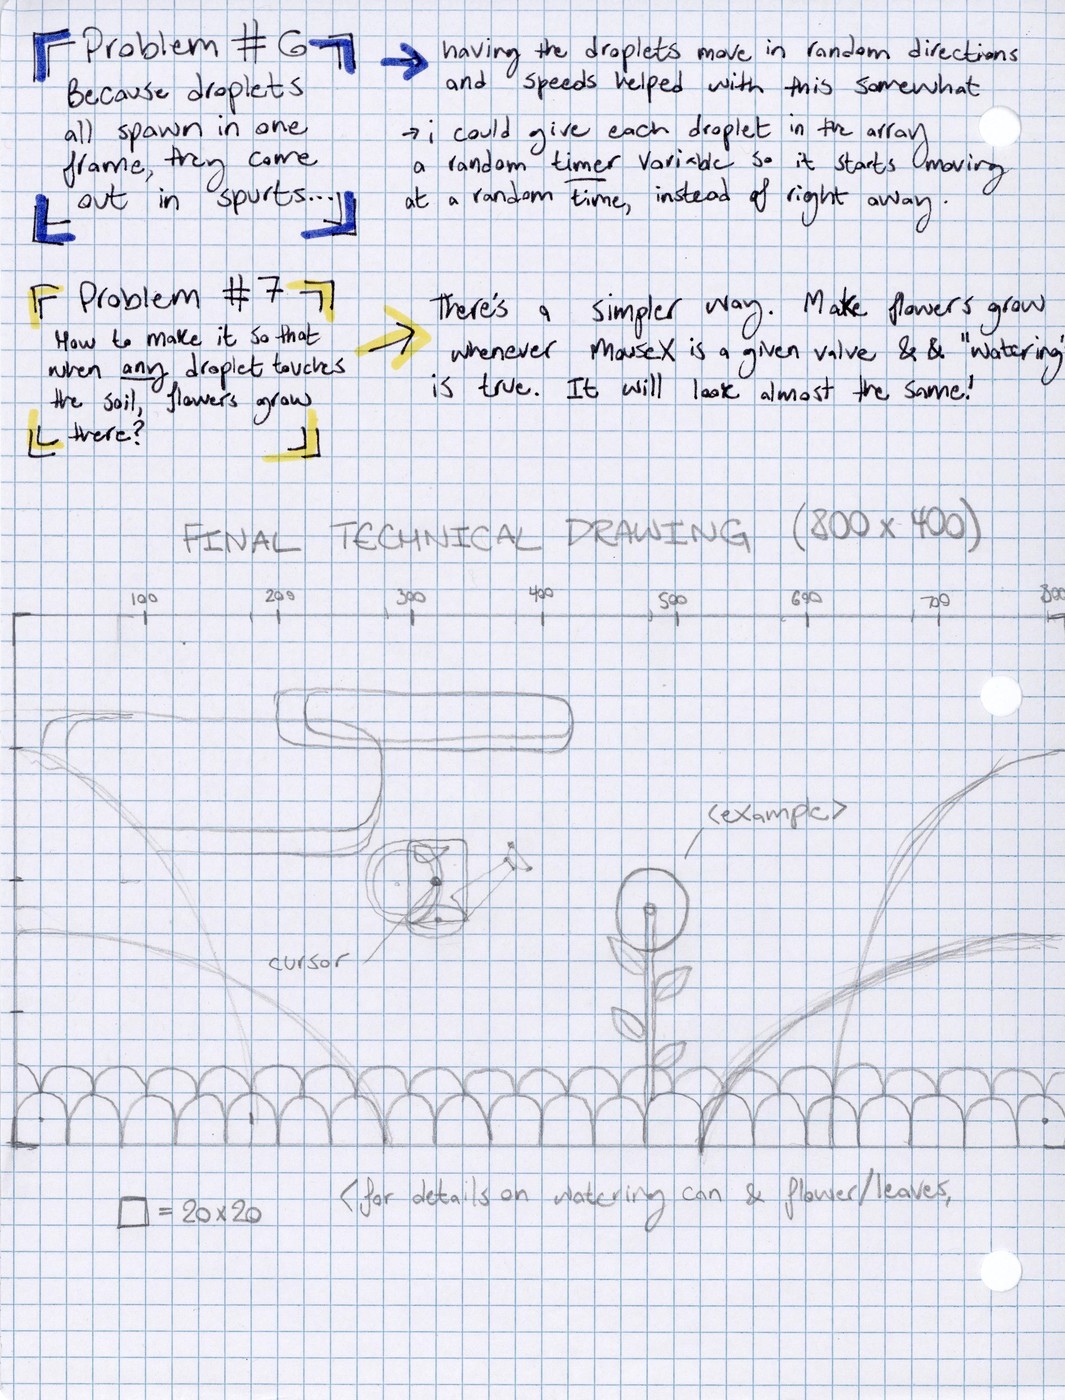 Problem # 6
Because droplets
all spawn in one
frame, they come
out in spurts...
having the droplets move in random directions
and speeds helped with this somewhat
→ i could give each droplet in the array
a random timer variable so it starts moving
at a random time, instead of right away.
Problem # 7
How to make it so that
when any droplet touches
the soil, flowers grow
there?
There's a simpler way. Make flowers grow
whenever MouseX is a given value & & "watering"
is true. It will look almost the same!
FINAL TECHNICAL DRAWING (800 x 400)
100 200 300 400 500 600 700 800
<example>
cursor
<for details on watering can & flower/leaves,
= 20x20